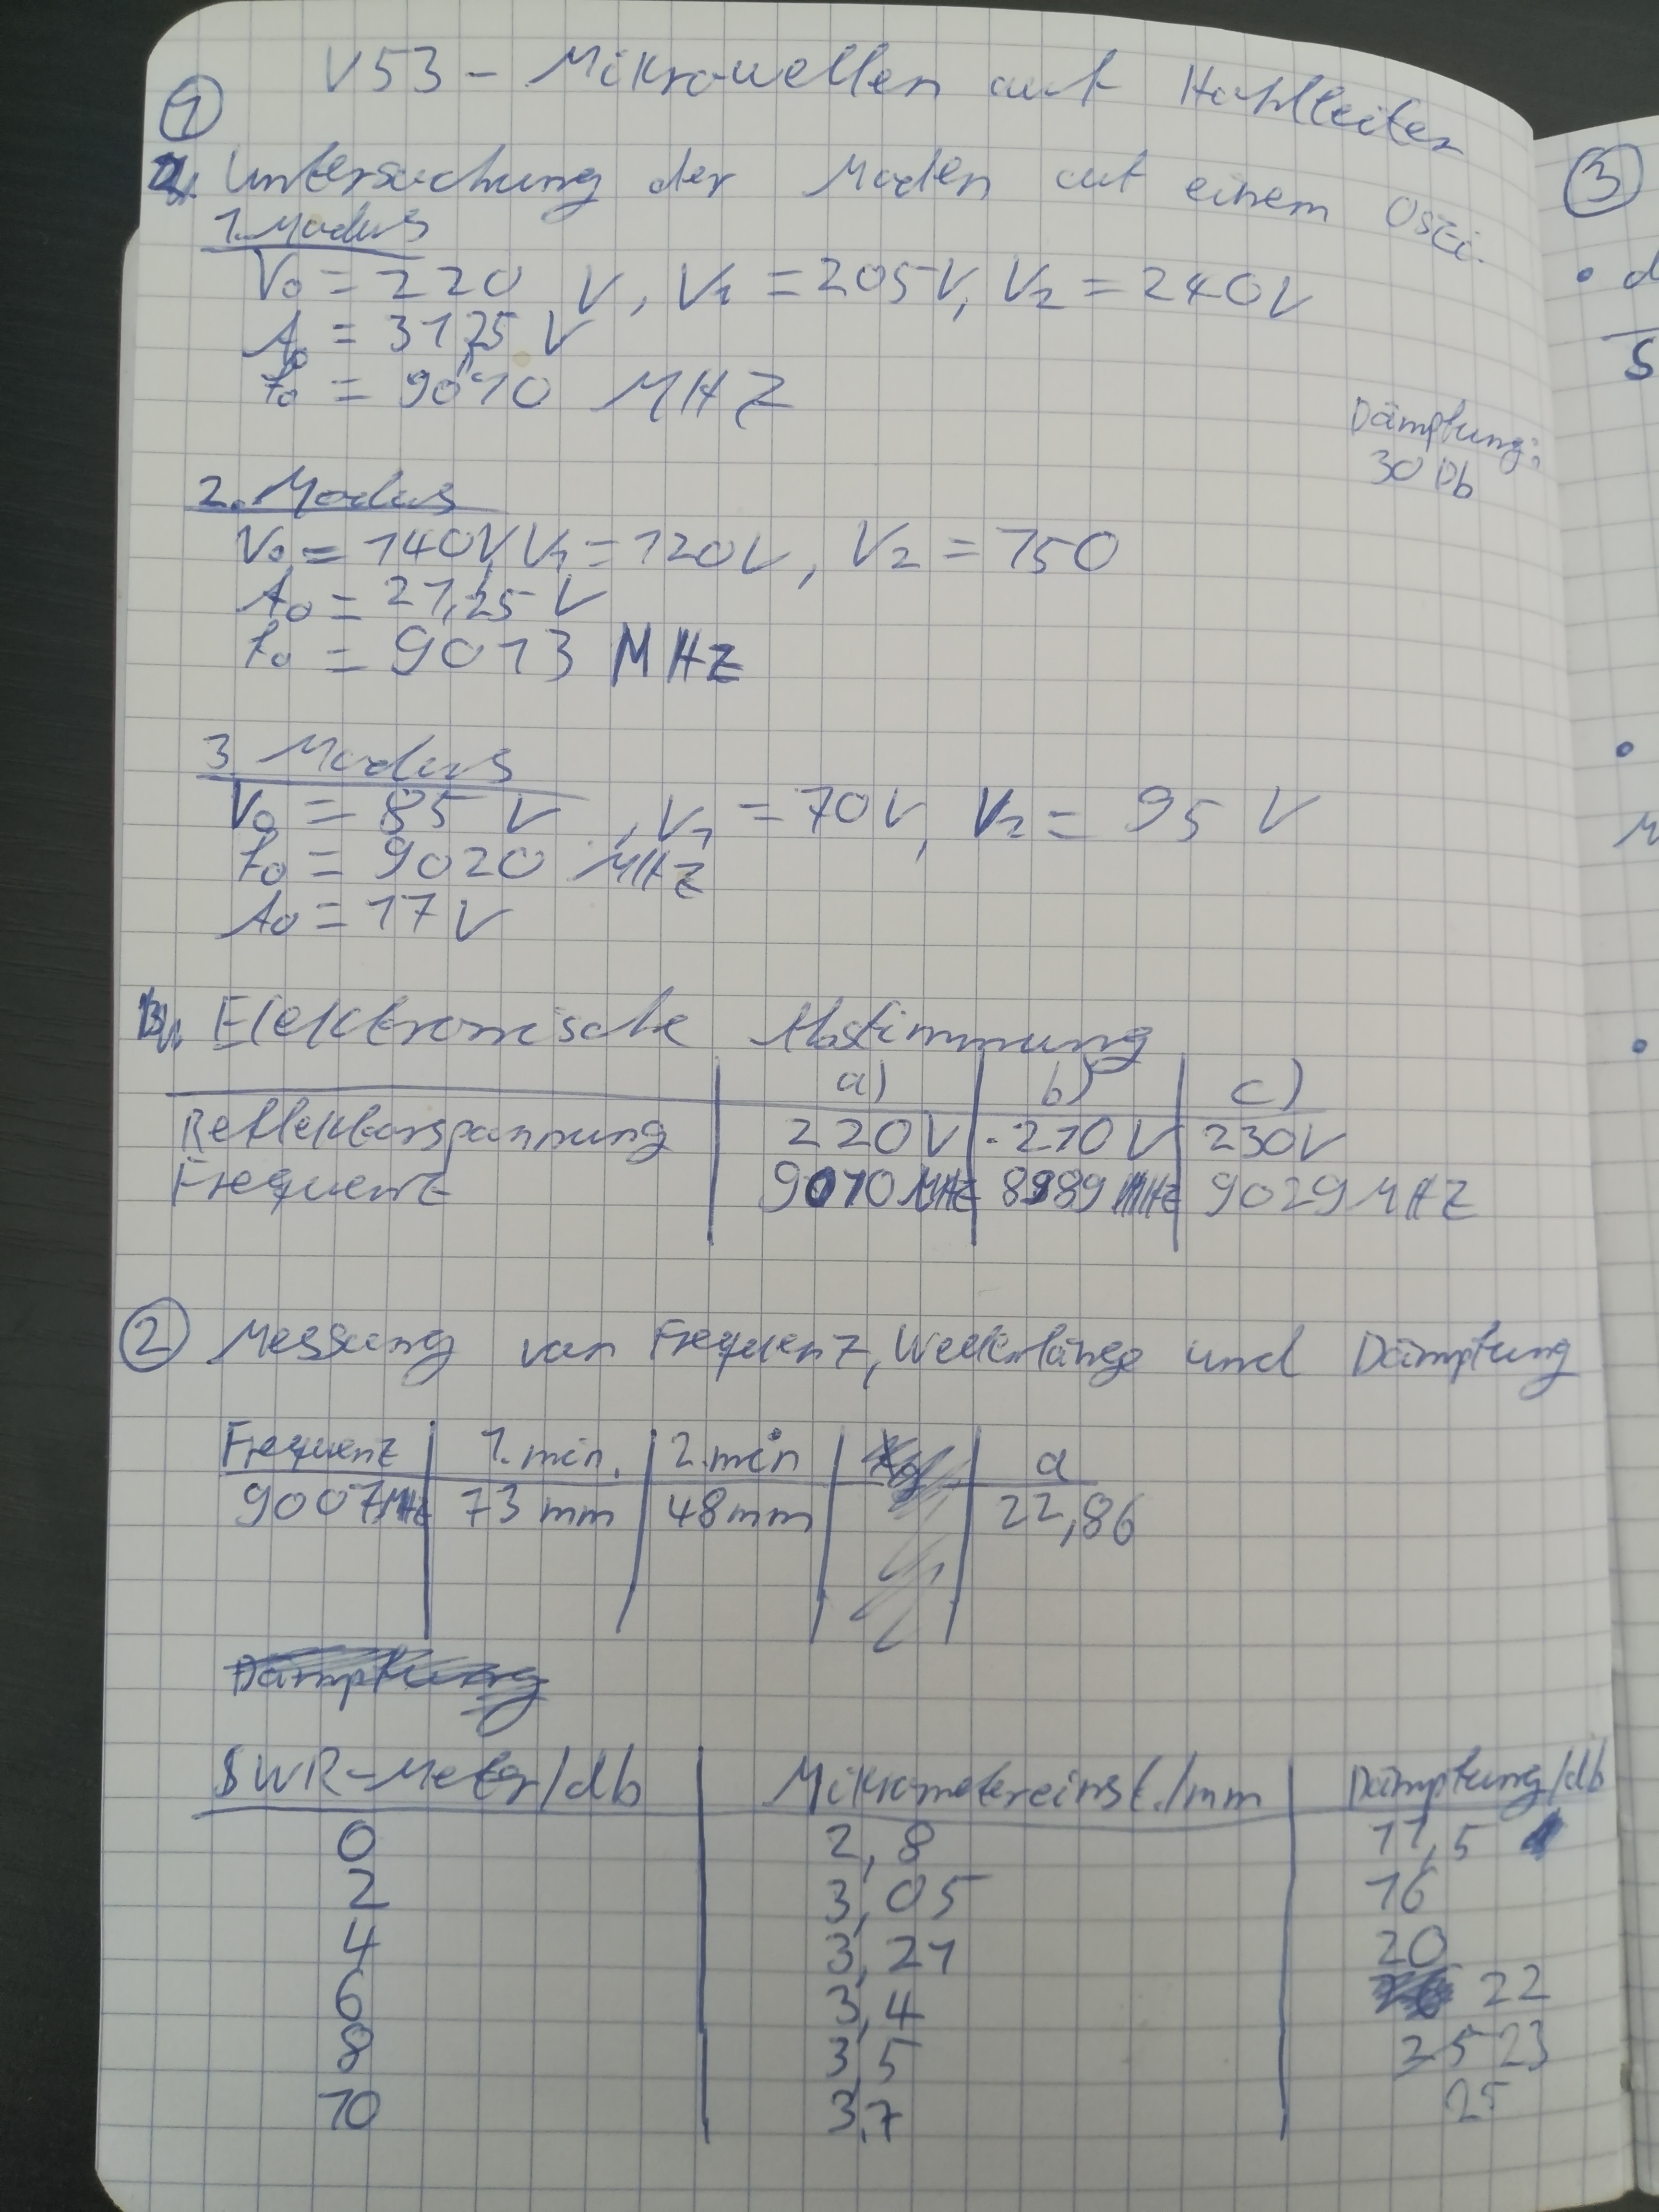 V53 - Mikrowellen auf Hohlleiter
①
a. Untersuchung der Moden auf einem Oszi.
1. Modus
V₀ = 220 V, V₁ = 205V, V₂ = 240V
A₀ = 31,25 V
f₀ = 9010 MHZ
Dämpfung:
30 Db
2. Modus
V₀ = 140V, V₁ = 120V, V₂ = 150
A₀ = 21,25 V
f₀ = 9013 MHZ
3 Modus
V₀ = 85 V, V₁ = 70V, V₂ = 95 V
f₀ = 9020 MHZ
A₀ = 17 V
B. Elektronische Abstimmung
a) b) c)
Reflektorspannung 220V -210V 230V
Frequenz 9010 MHZ 8989 MHz 9029 MHZ
② Messung von Frequenz, Wellenlänge und Dämpfung
Frequenz 1. min. 2. min a
9007MHz 73 mm 48mm 22,86
Dämpfung
SWR-Meter/db Mikrometereinst./mm Dämpfung/db
0 2,8 11,5
2 3,05 16
4 3,21 20
6 3,4 22
8 3,5 25 23
10 3,7 25
③